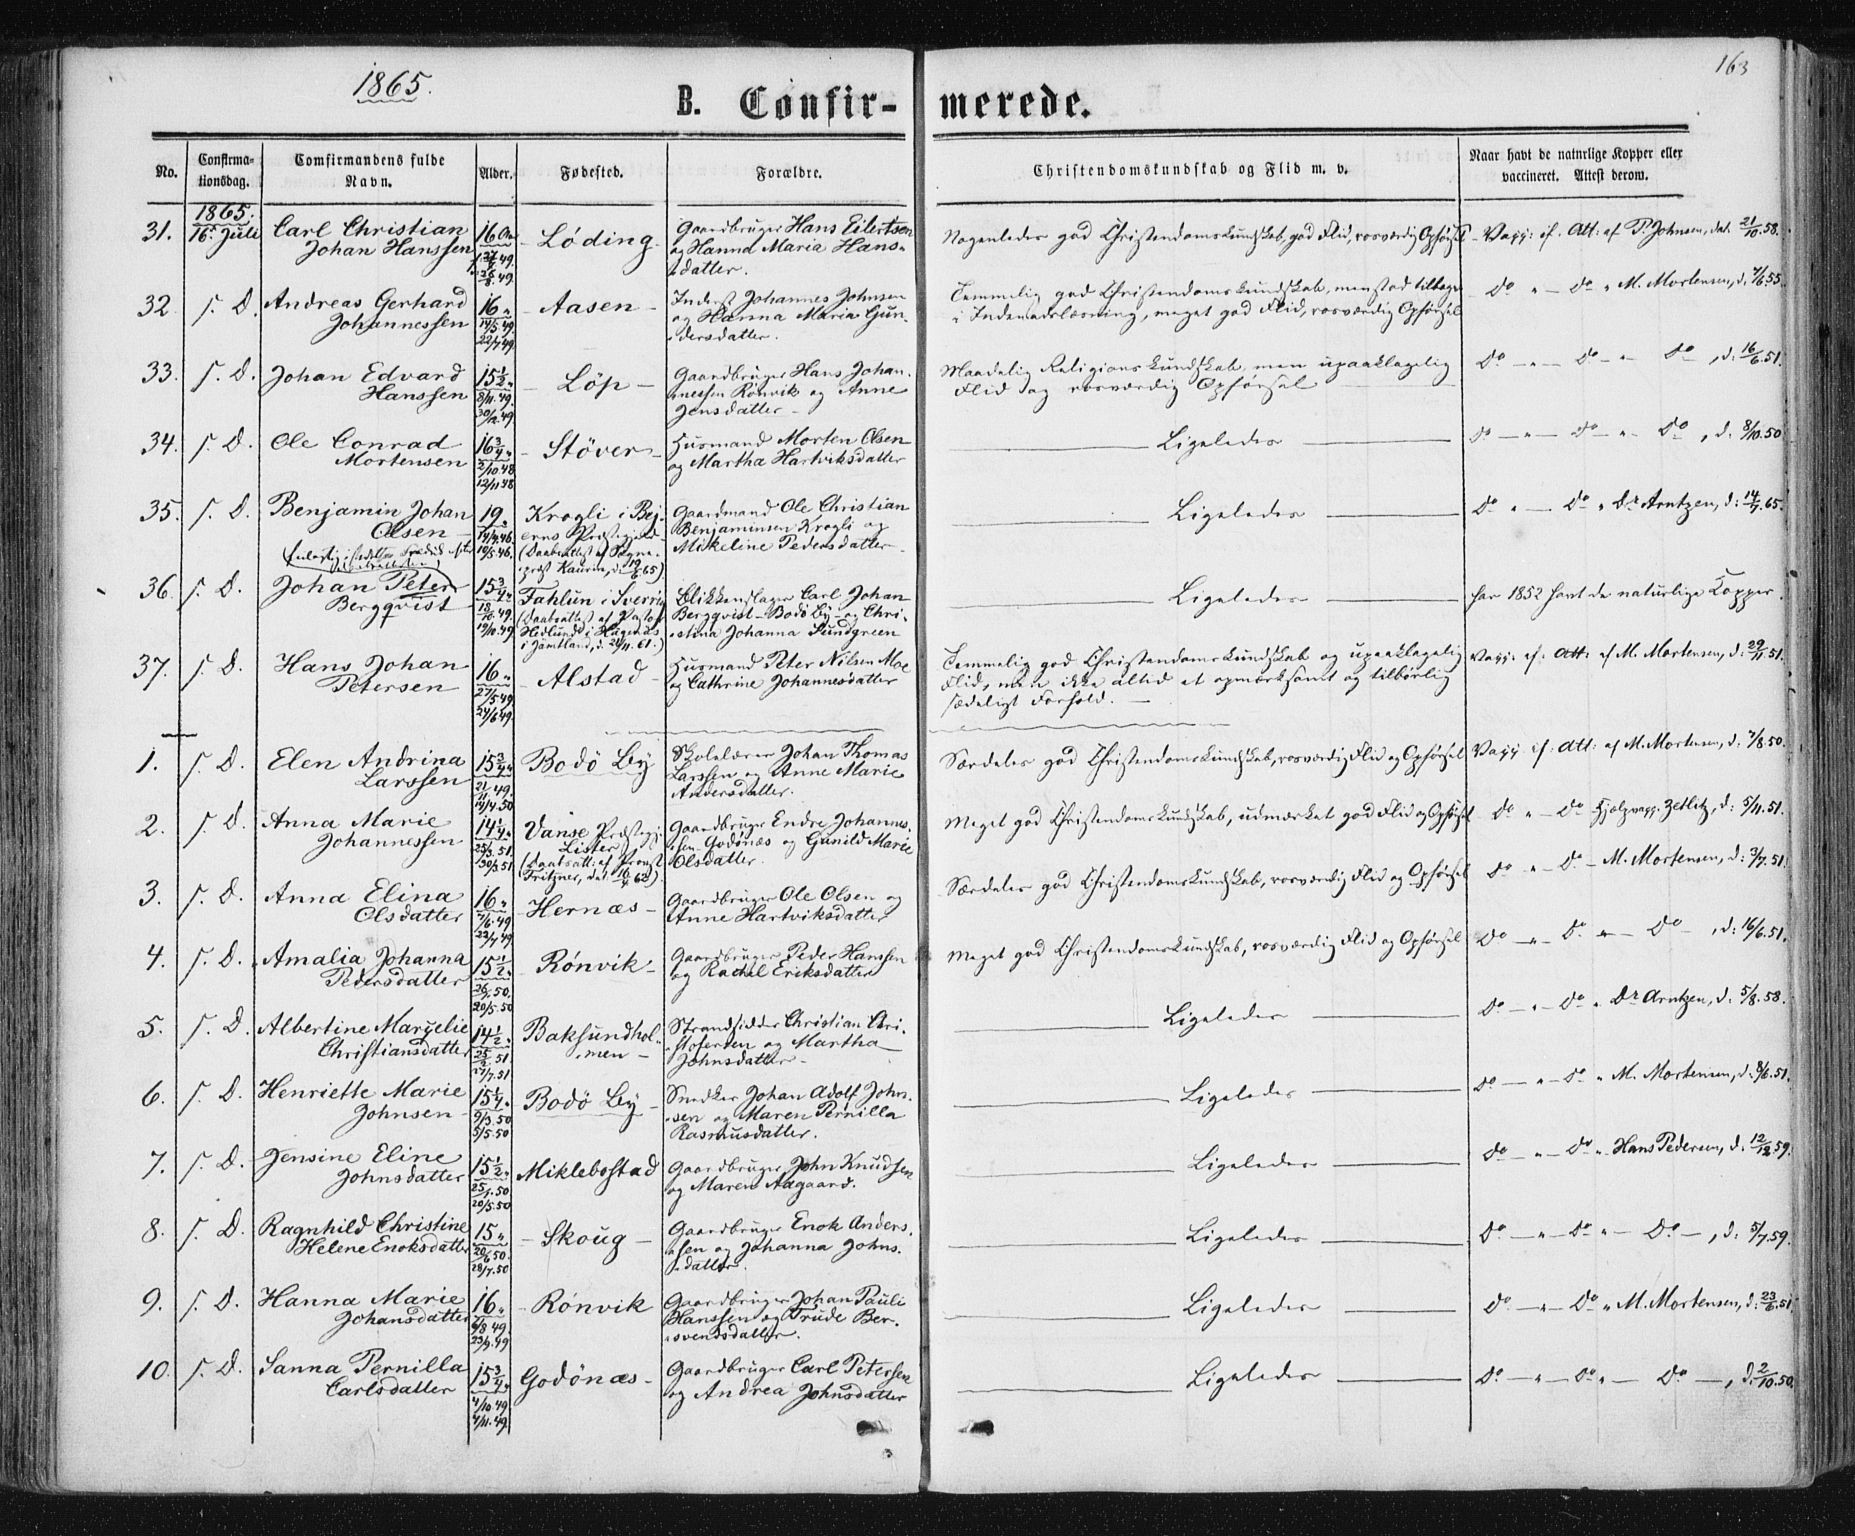 1865.
163
B. Confirmerede.
No.
Confirmationsdag.
Comfirmandens fulde Navn.
Alder.
Fødested.
Forældre.
Christendomskundskab og Flid m. v.
Naar havt de naturlige Kopper eller vaccineret. Attest derom.
1865.
31. 16. Juli Carl Christian Johan Hanssen 16 Løding Gaardbruger Hans Eilertsen og Hanna Maria Hansdatter. Nogenledes god Christendomskundskab, god Flid, rosværdig Opførsel Vacc: if. Att: af P. Johnsen, dat. 21/10 58.
32. s. D. Andreas Gerhard Johannessen 16 14/5 49. 22/7 49. Aasen Inderst Johannes Johnsen og Hanna Maria Gundersdatter. Temmelig god Christendomskundskab, men stod tilbage i Indenadslæsning, meget god Flid, rosværdig Opførsel do do M. Mortensen, d. 7/6 55.
33. s. D. Johan Edvard Hanssen 15 1/2 8/11. 49. 30/12. 49 Løp Gaardbruger Hans Johannessen Rønvik og Anne Jensdatter Maadelig Religionskundskab, men upaaklagelig Flid og rosværdig Opførsel do do do, d: 16/6. 51.
34. s. D. Ole Conrad Mortensen 16 3/4 2/10. 48 12/11 48 Støver Husmand Morten Olsen og Martha Hartviksdatter Ligeledes do do do, d: 8/10. 50
35. s. D. Benjamin Johan Olsen 19 14/4. 46. 19/5. 46. Krogli i Bejerns Præstegjeld (Daabsattest af Sognepræst Kaurin, d. 19/6 65). Gaardmand Ole Christian Benjaminsen Krogli og Mikeline Pedersdatter Ligeledes do do Dr Arntzen, d: 14/7. 65.
36. s. D. Johan Peter Bergqvist 15 3/4 18/10. 49. 19/10. 49 Fahlun i Sverrig (Daabsattest af Pastor Hedlund i Hägenäs i Jämtland, d. 24/11. 61.) Blikkenslager Carl Johan Bergqvist Bodø By og Christina Johanna Sundgreen Ligeledes har 1852 havt de naturlige Kopper.
37. s. D. Hans Johan Petersen 16 27/5 49. 24/6 49. Alstad Husmand Peter Nilsen Moe og Cathrine Johannesdatter Temmelig god Christendomskundskab og upaaklagelig Flid, men ikke altid et opmærksomt og tilbørlig sædeligt Forhold. Vacc: if: Att: af M. Mortensen, d: 29/11 51.
1. s. D. Elen Andrina Larssen 15 3/4 21/11 49. 14/4. 50 Bodø By Skolelærer Johan Thomas Larssen og Anne Marie Andersdatter. Særdeles god Christendomskundskab, rosværdig Flid og Opførsel Vacc: if: Att: af M. Mortensen, d: 7/8. 50.
2. s. D. Anna Marie Johannessen 14 1/4 25/3. 51. 30/3. 51 Vanse Præstegj: Lister (Daabsatt: af Provst Fritzner, dat. 62). Gaardbruger Endre Johannessen Godønæs og Gunild Marie Olsdatter. Meget god Christendomskundskab, udmærket god Flid og Opførsel do do Hjelpevacc: Zetlitz, d: 5/11. 51.
3. s. D. Anna Elina Olsdatter 16 7/6. 49 22/7 49 Hernæs Gaardbruger Ole Olsen og Anne Hartviksdatter Særdeles god Christendomskundskab, rosværdig Flid og Opførsel do do M. Mortensen, d: 3/7. 51.
4. s. D. Amalia Johanna Pedersdatter 15 1/2 26/1. 50. 20/5. 50 Rønvik Gaardbruger Peder Hanssen og Rachel Eriksdatter Meget god Christendomskundskab, rosværdig Flid og Opførsel do do do, d: 16/6. 51.
5. s. D. Albertine Margelie Christiansdatter 14 1/2 25/2 51 27/7. 51 Baksundholmen Strandsidder Christian Christofersen og Martha Johnsdatter Ligeledes do do Dr Arntzen, d: 5/8. 58.
6. s. D. Henriette Marie Johnsen 15 1/4 9/3. 50 5/5. 50 Bodø By Snedker Johan Adolf Johnsen og Maren Pernilla Rasmusdatter. Ligeledes do do M. Mortensen, d: 8/6. 51.
7. s. D. Jensine Eline Johnsdatter 15 1/2 25/1. 50 20/5. 50 Miklebostad Gaardbruger John Knudsen og Maren Aagaard. Ligeledes do do Hans Pedersen, d: 12/12 59.
8. s. D. Ragnhild Christine Helene Enoksdatter 15 20/6 50. 28/7. 50 Skoug Gaardbruger Enok Andersen og Johanna Johnsdatter. Ligeledes do do do, d: 5/7. 59.
9. s. D. Hanna Marie Johansdatter 16 6/8 49. 23/9. 49 Rønvik Gaardbruger Johan Pauli Hanssen og Trude Bersvendsdatter. Ligeledes do do M. Mortensen, d: 23/6. 51.
10. s. D. Sanna Pernilla Carlsdatter 15 3/4 4/10. 49 4/11. 49 Godønæs Gaardbruger Carl Petersen og Andrea Johnsdatter Ligeledes do do do, d: 2/10. 50.